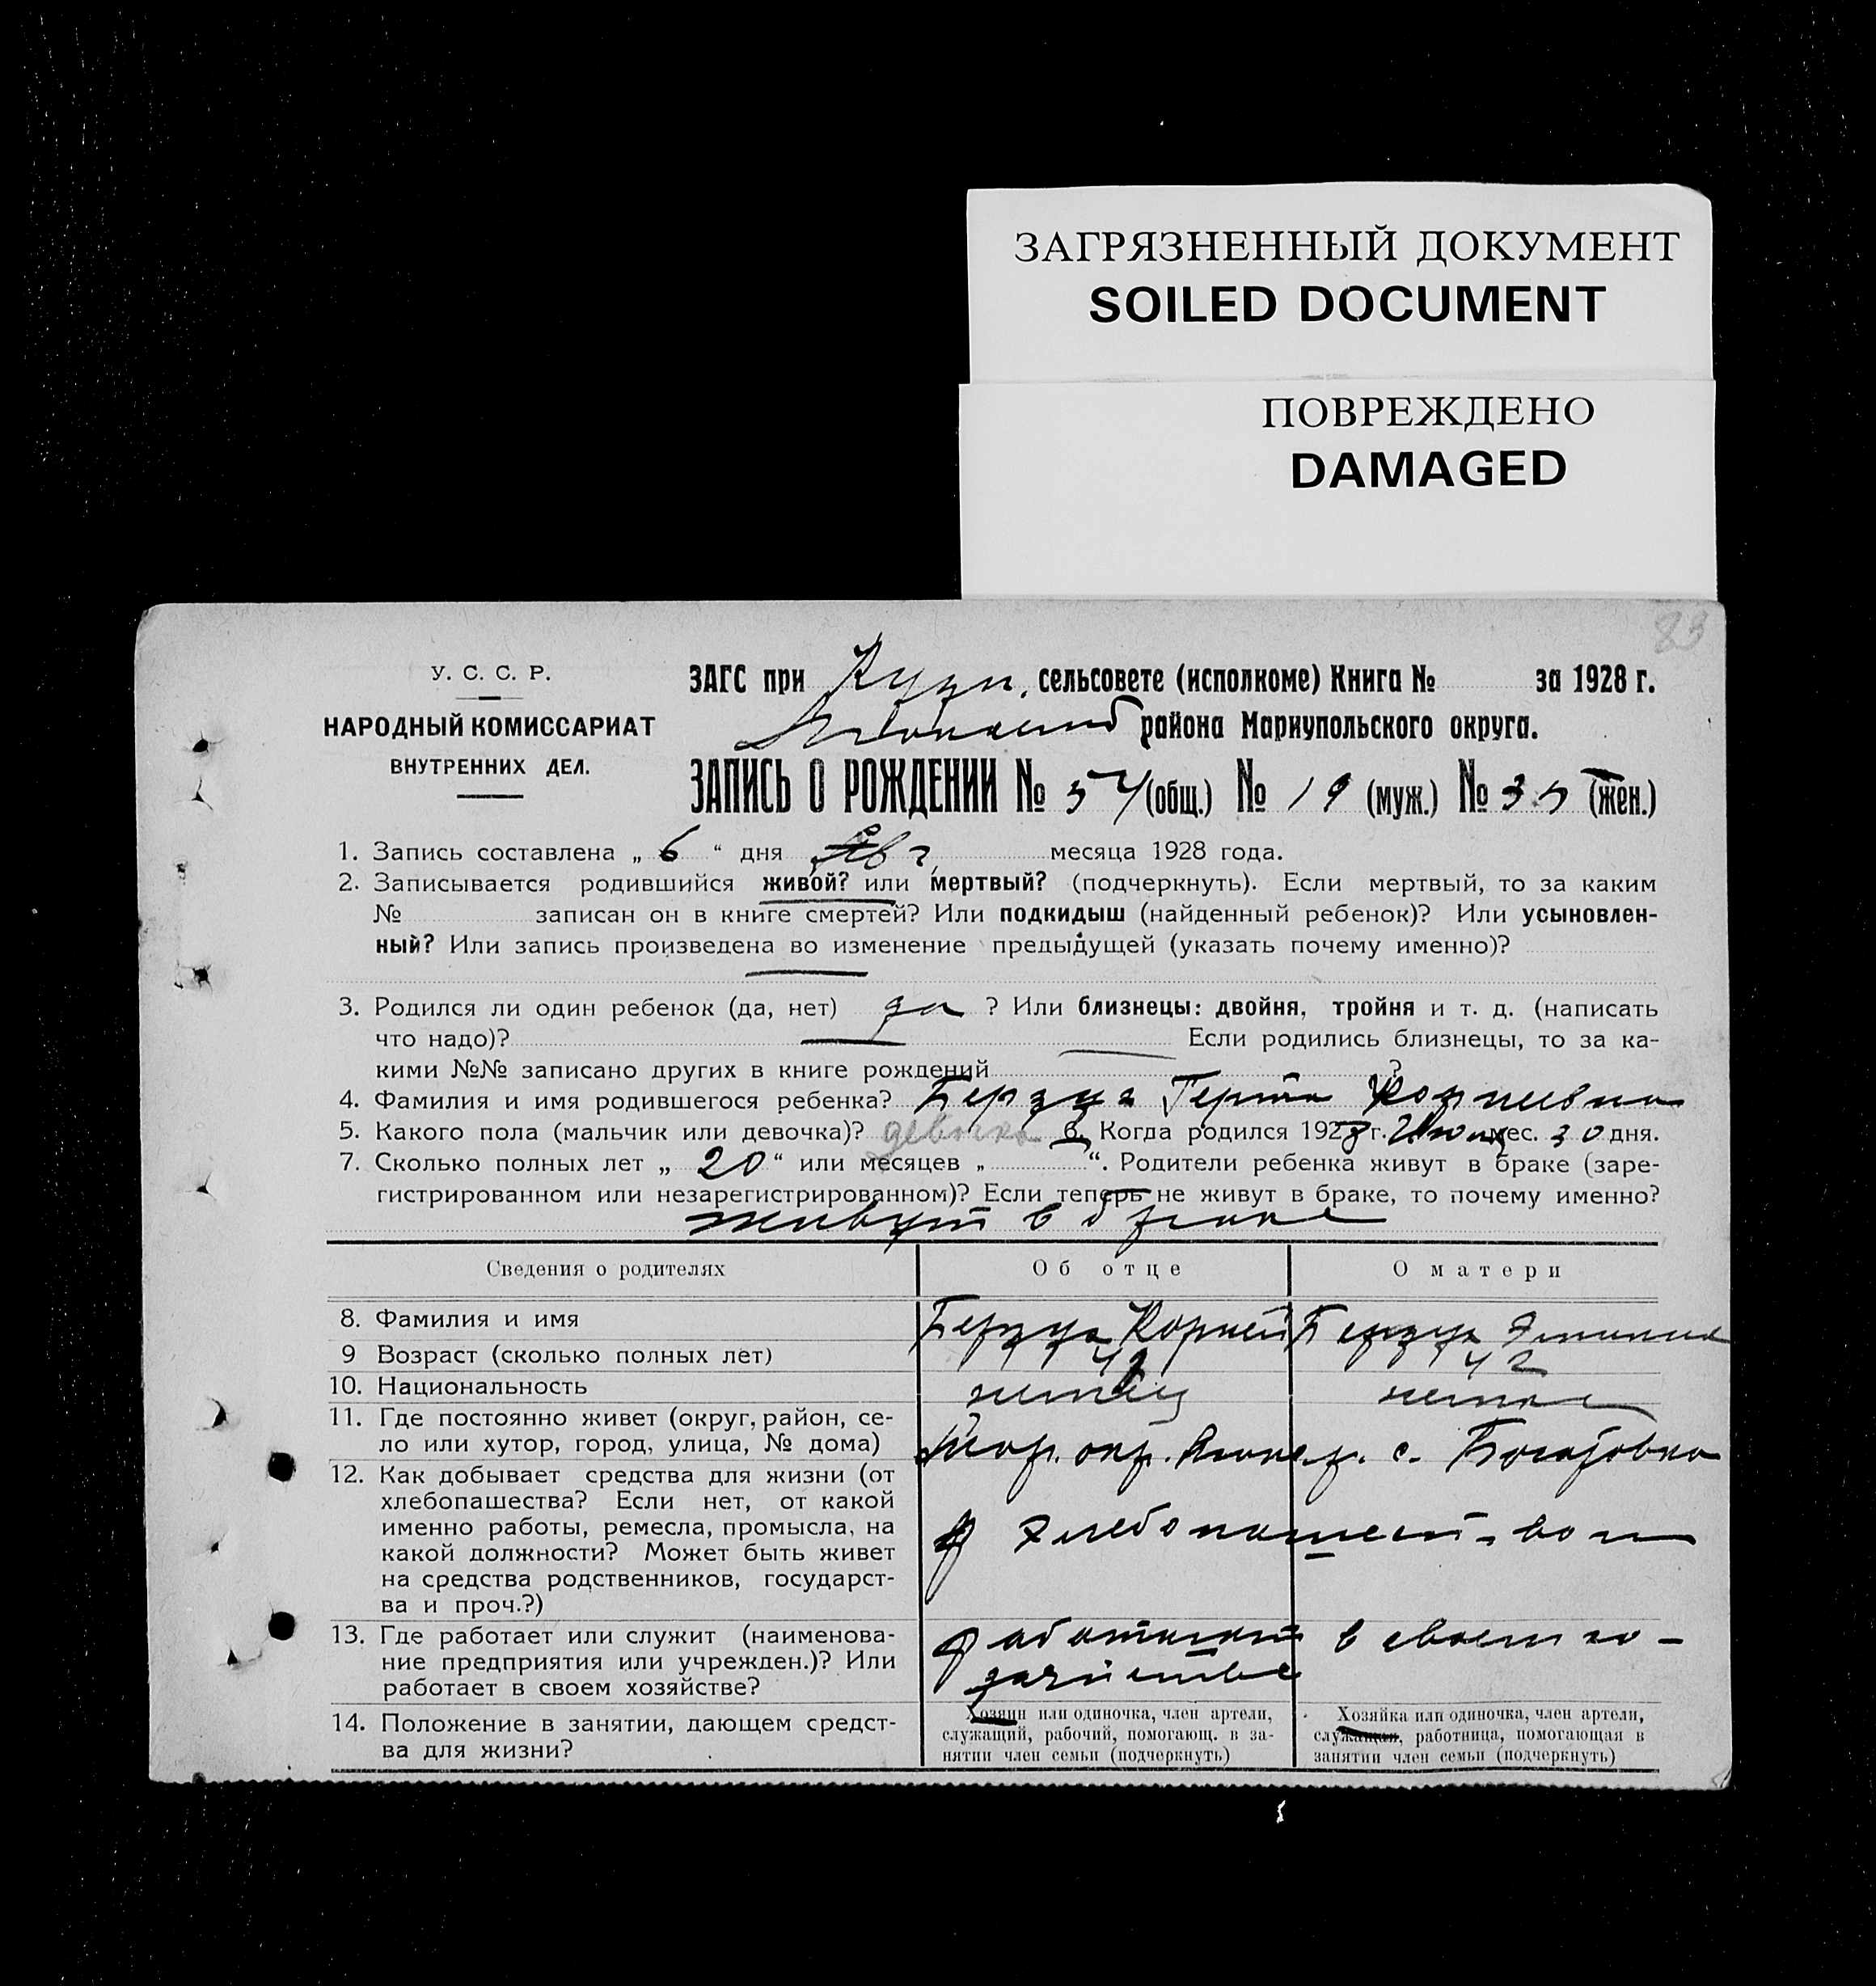 ЗАГРЯЗНЕННЫЙ ДОКУМЕНТ
SOILED DOCUMENT
ПОВРЕЖДЕНО
DAMAGED
83
У. С. С. Р.
НАРОДНЫЙ КОМИССАРИАТ
ВНУТРЕННИХ ДЕЛ.
ЗАГС при сельсовете (исполкоме) Книга № за 1928 г.
района Мариупольского округа.
ЗАПИСЬ О РОЖДЕНИИ № 54 (общ.) № 19 (муж.) № 35 (жен.)
1. Запись составлена „ 6 “ дня месяца 1928 года.
2. Записывается родившийся живой? или мертвый? (подчеркнуть). Если мертвый, то за каким
№ записан он в книге смертей? Или подкидыш (найденный ребенок)? Или усыновлен-
ный? Или запись произведена во изменение предыдущей (указать почему именно)?
3. Родился ли один ребенок (да, нет) да ? Или близнецы: двойня, тройня и т. д. (написать
что надо)? Если родились близнецы, то за ка-
кими №№ записано других в книге рождений ?
4. Фамилия и имя родившегося ребенка? Герта Корнеевна
5. Какого пола (мальчик или девочка)? девочка 6. Когда родился 1928 г. мес. 30 дня.
7. Сколько полных лет „ 20 “ или месяцев „ “. Родители ребенка живут в браке (заре-
гистрированном или незарегистрированном)? Если теперь не живут в браке, то почему именно?
живут в браке
Сведения о родителях Об отце О матери
8. Фамилия и имя Корней
9 Возраст (сколько полных лет) 42 42
10. Национальность немец немка
11. Где постоянно живет (округ, район, се-
ло или хутор, город, улица, № дома) Мар. окр. с.
12. Как добывает средства для жизни (от
хлебопашества? Если нет, от какой
именно работы, ремесла, промысла, на
какой должности? Может быть живет
на средства родственников, государст-
ва и проч.?)
хлебопашеством
13. Где работает или служит (наименова-
ние предприятия или учрежден.)? Или
работает в своем хозяйстве?
работают в своем хо-
зяйстве
14. Положение в занятии, дающем средст-
ва для жизни?
Хозяин или одиночка, член артели,
служащий, рабочий, помогающ. в за-
нятии член семьи (подчеркнуть)
Хозяйка или одиночка, член артели,
служащая, работница, помогающая в
занятии член семьи (подчеркнуть)